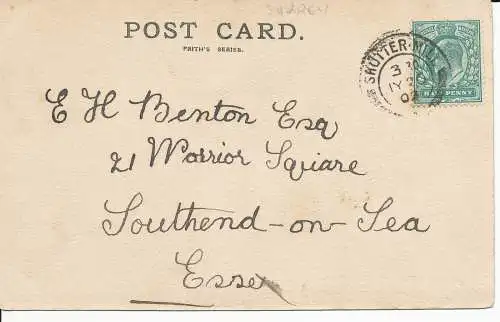 SURREY
POST CARD.
FRITH'S SERIES.
SHOTTER-MILL
HALFPENNY
E H Benton Esq
21 Worrior Square
Southend-on-Sea
Essex